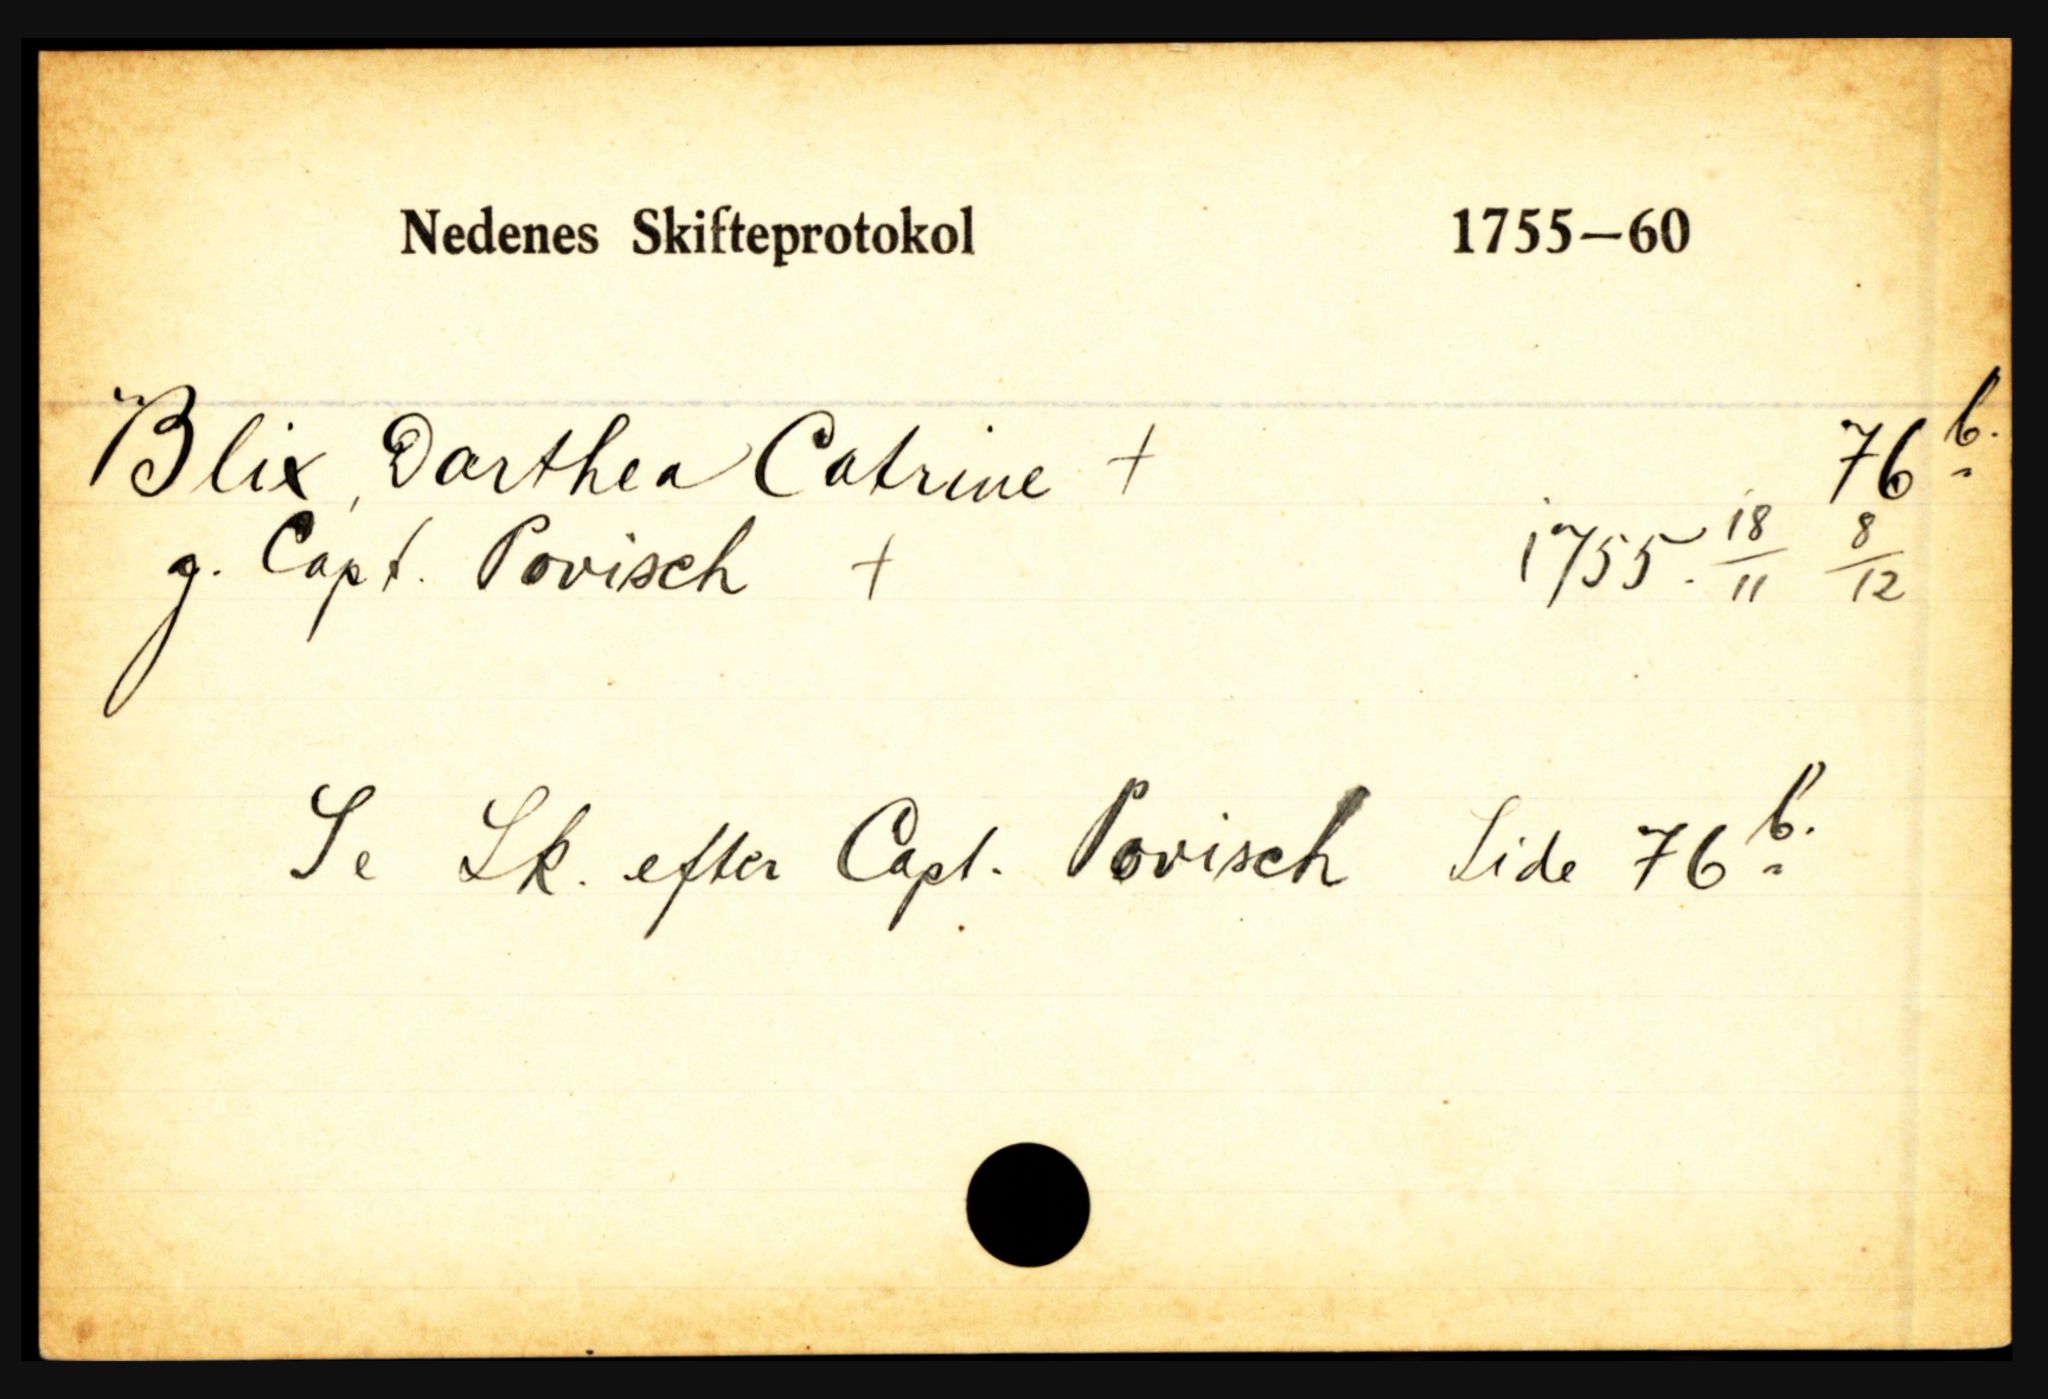 Nedenes Skifteprotokol 1755—60
Blix, Dorthea Catrine + 76 b.
g. Capt. Povisch + 1755. 18/11 8/12
Se Sk. efter Capt. Povisch Side 76 b.